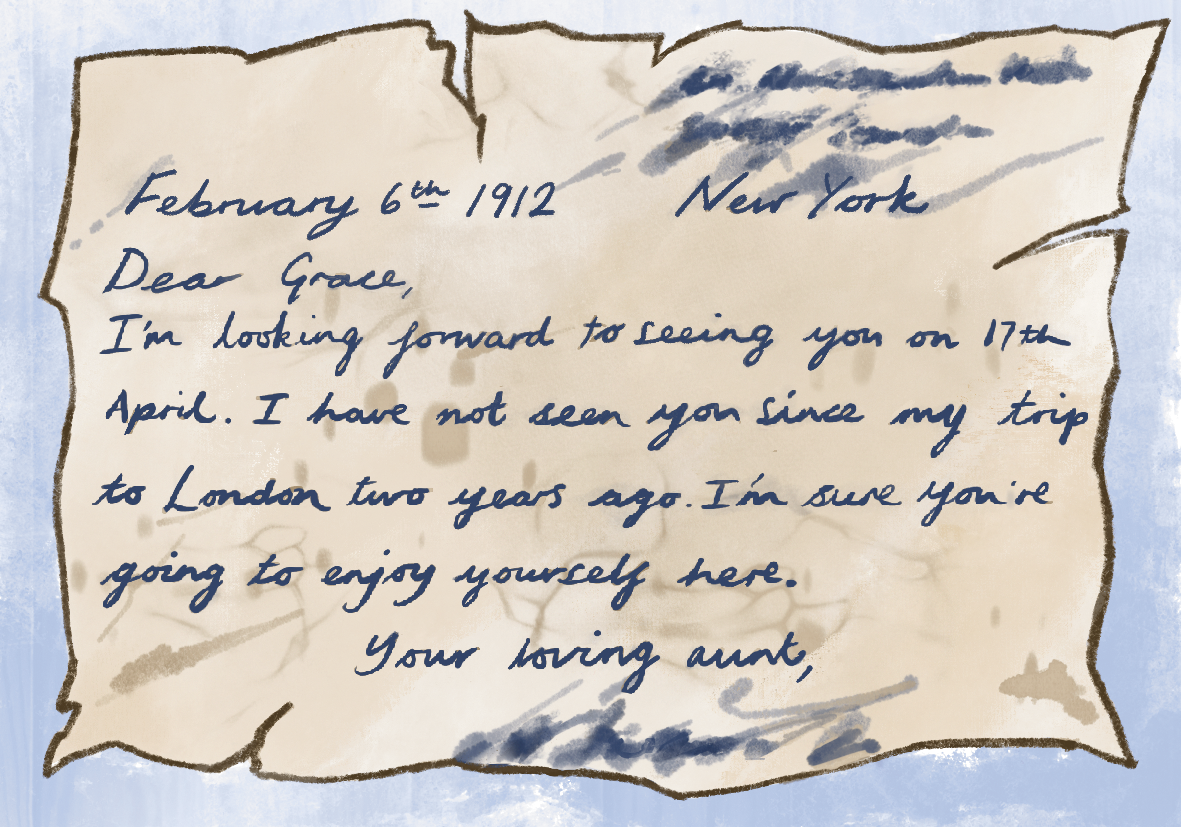 February 6th 1912 New York
Dear Grace,
I'm looking forward to seeing you on 17th
April. I have not seen you since my trip
to London two years ago. I'm sure you're
going to enjoy yourself here.
Your loving aunt,